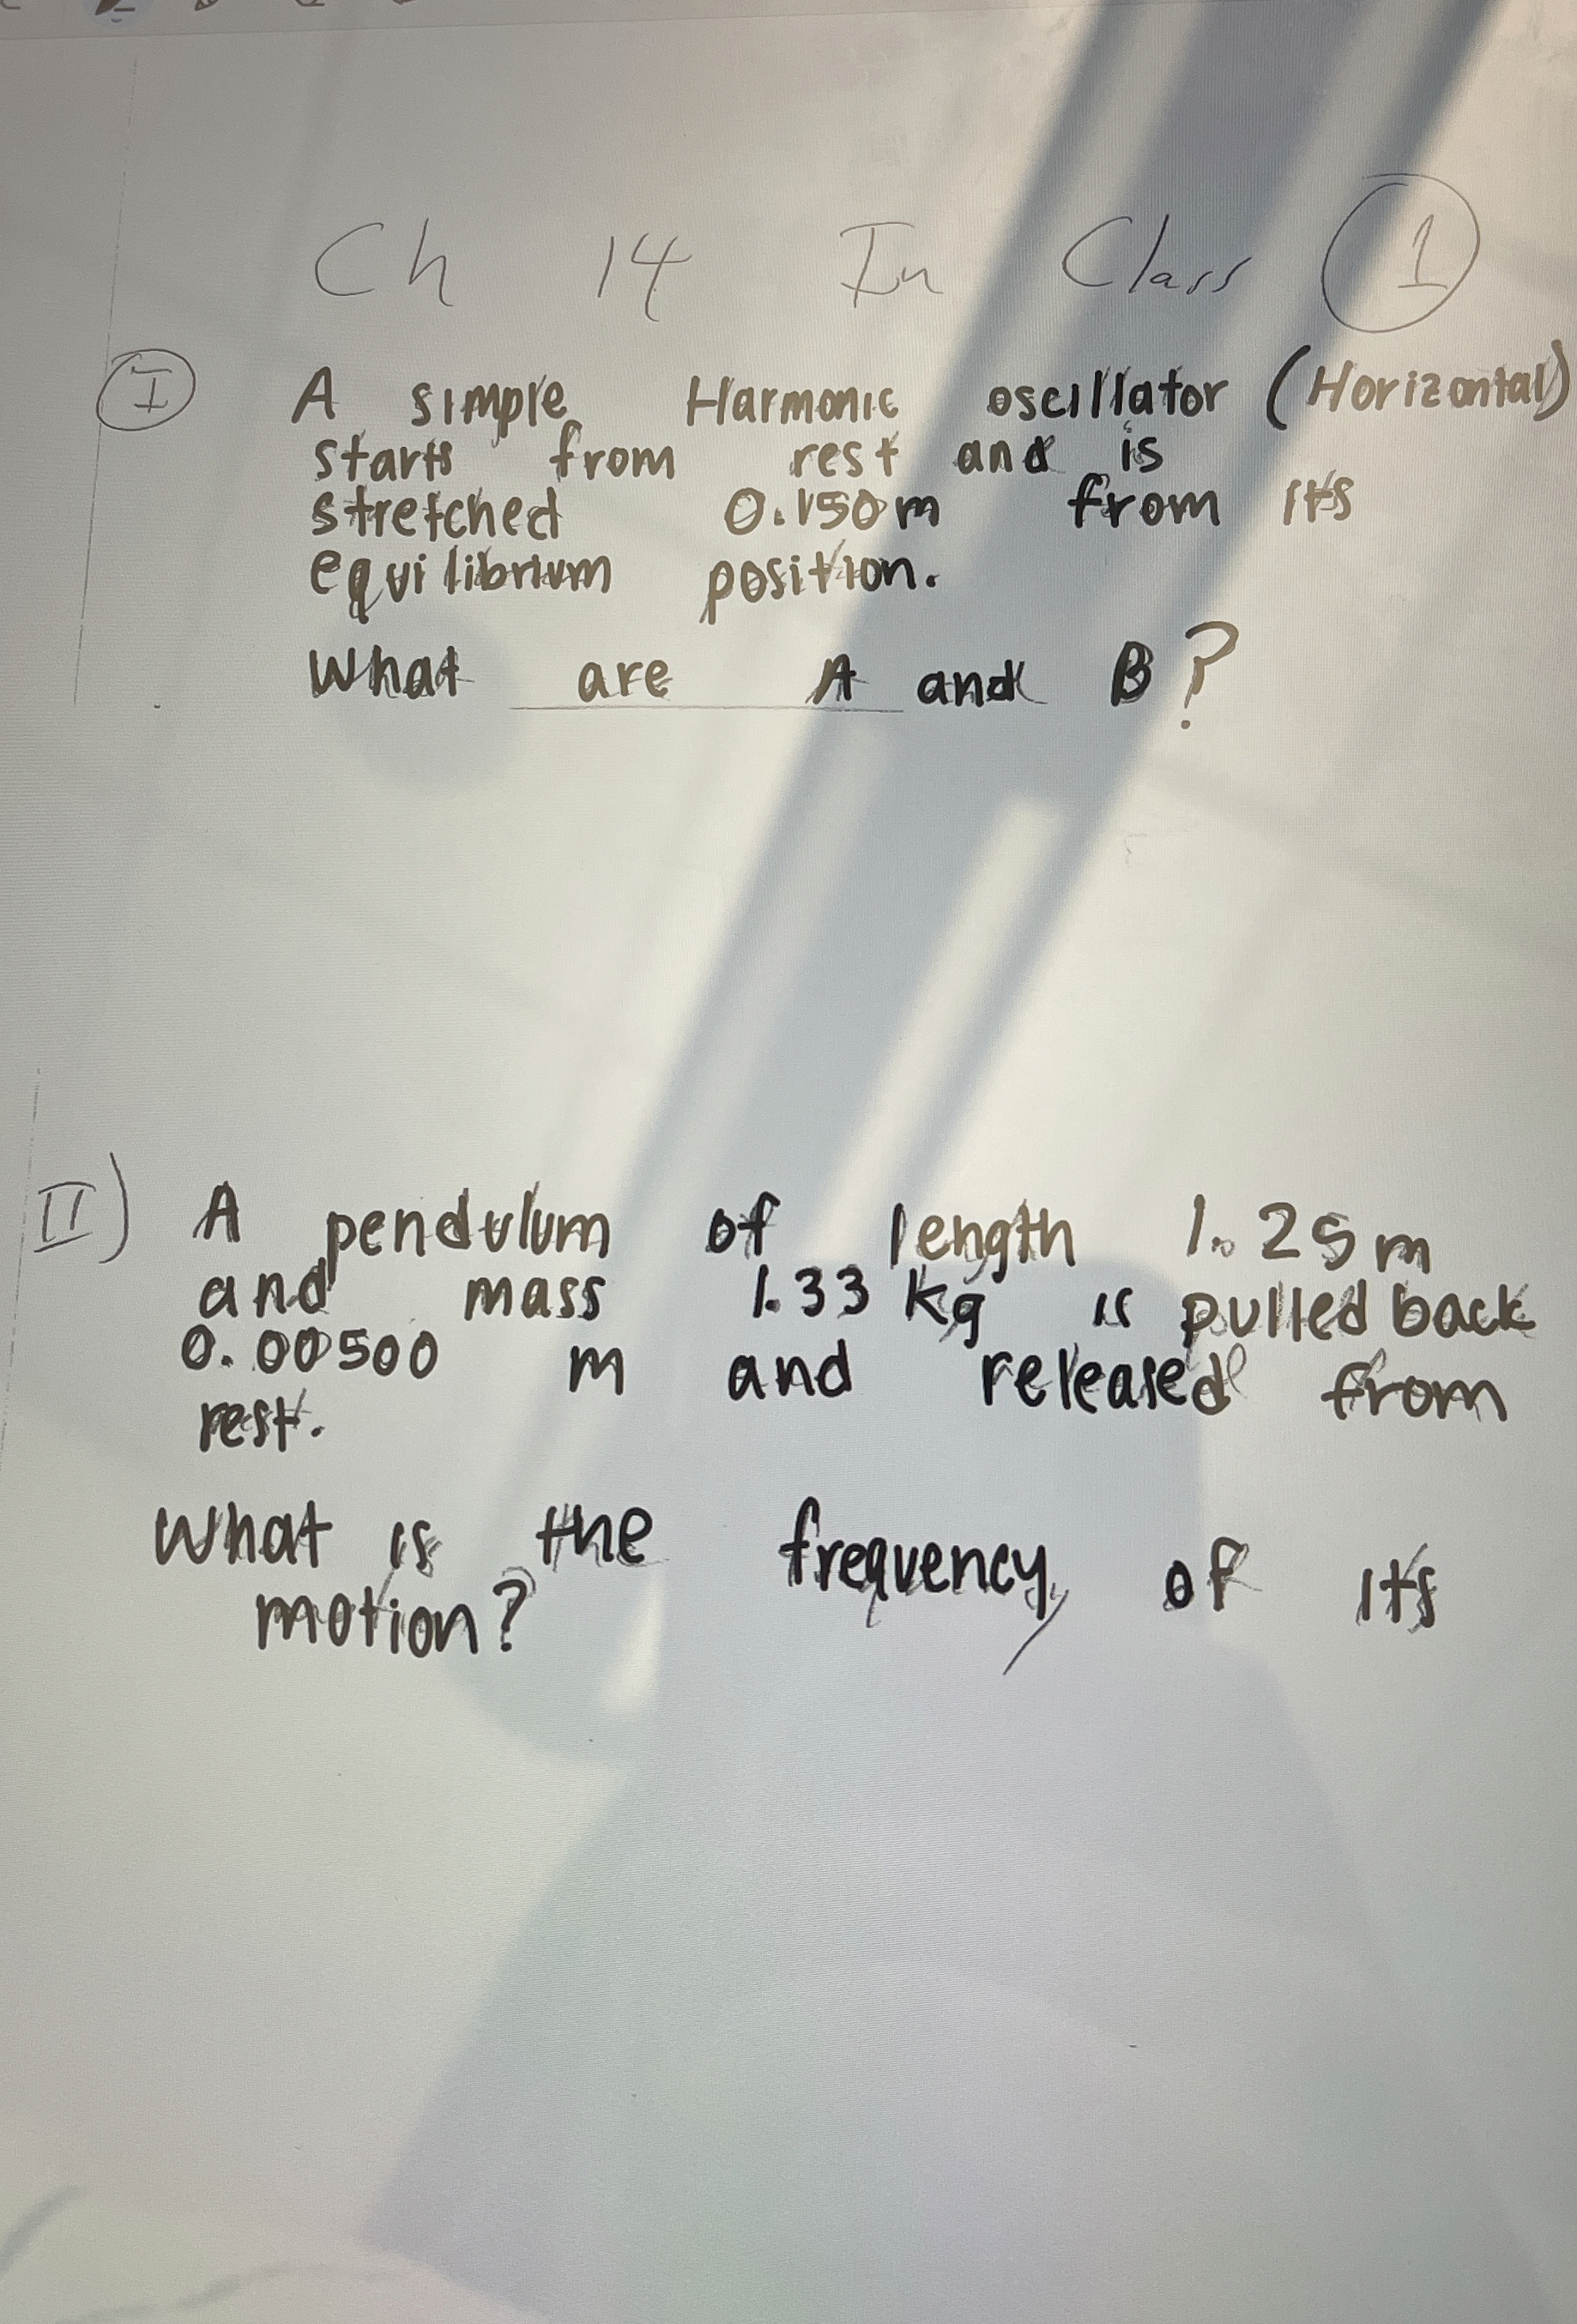 Ch 14 In Class 1
I A simple Harmonic oscillator (Horizontal)
starts from rest and is
stretched 0.150m from its
equilibrium position.
What are A and B?
II) A pendulum of length 1.25m
and mass 1.33 kg is pulled back
0.00500 m and released from
rest.
What is the frequency of its
motion?